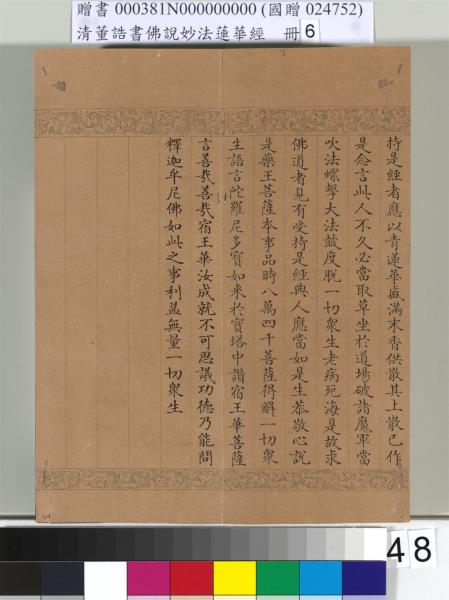 贈書 000381N000000000 (國贈 024752)
清董誥書佛說妙法蓮華經 冊 6
持是經者應以青蓮華盛滿末香供散其上散已作
是念言此人不久必當取草坐於道場破諸魔軍當
吹法螺擊大法鼓度脫一切眾生老病死海是故求
佛道者見有受持是經典人應當如是生恭敬心說
是藥王菩薩本事品時八萬四千菩薩得解一切眾
生語言陀羅尼多寶如來於寶塔中讚宿王華菩薩
言善哉善哉宿王華汝成就不可思議功德乃能問
釋迦牟尼佛如此之事利益無量一切眾生
48